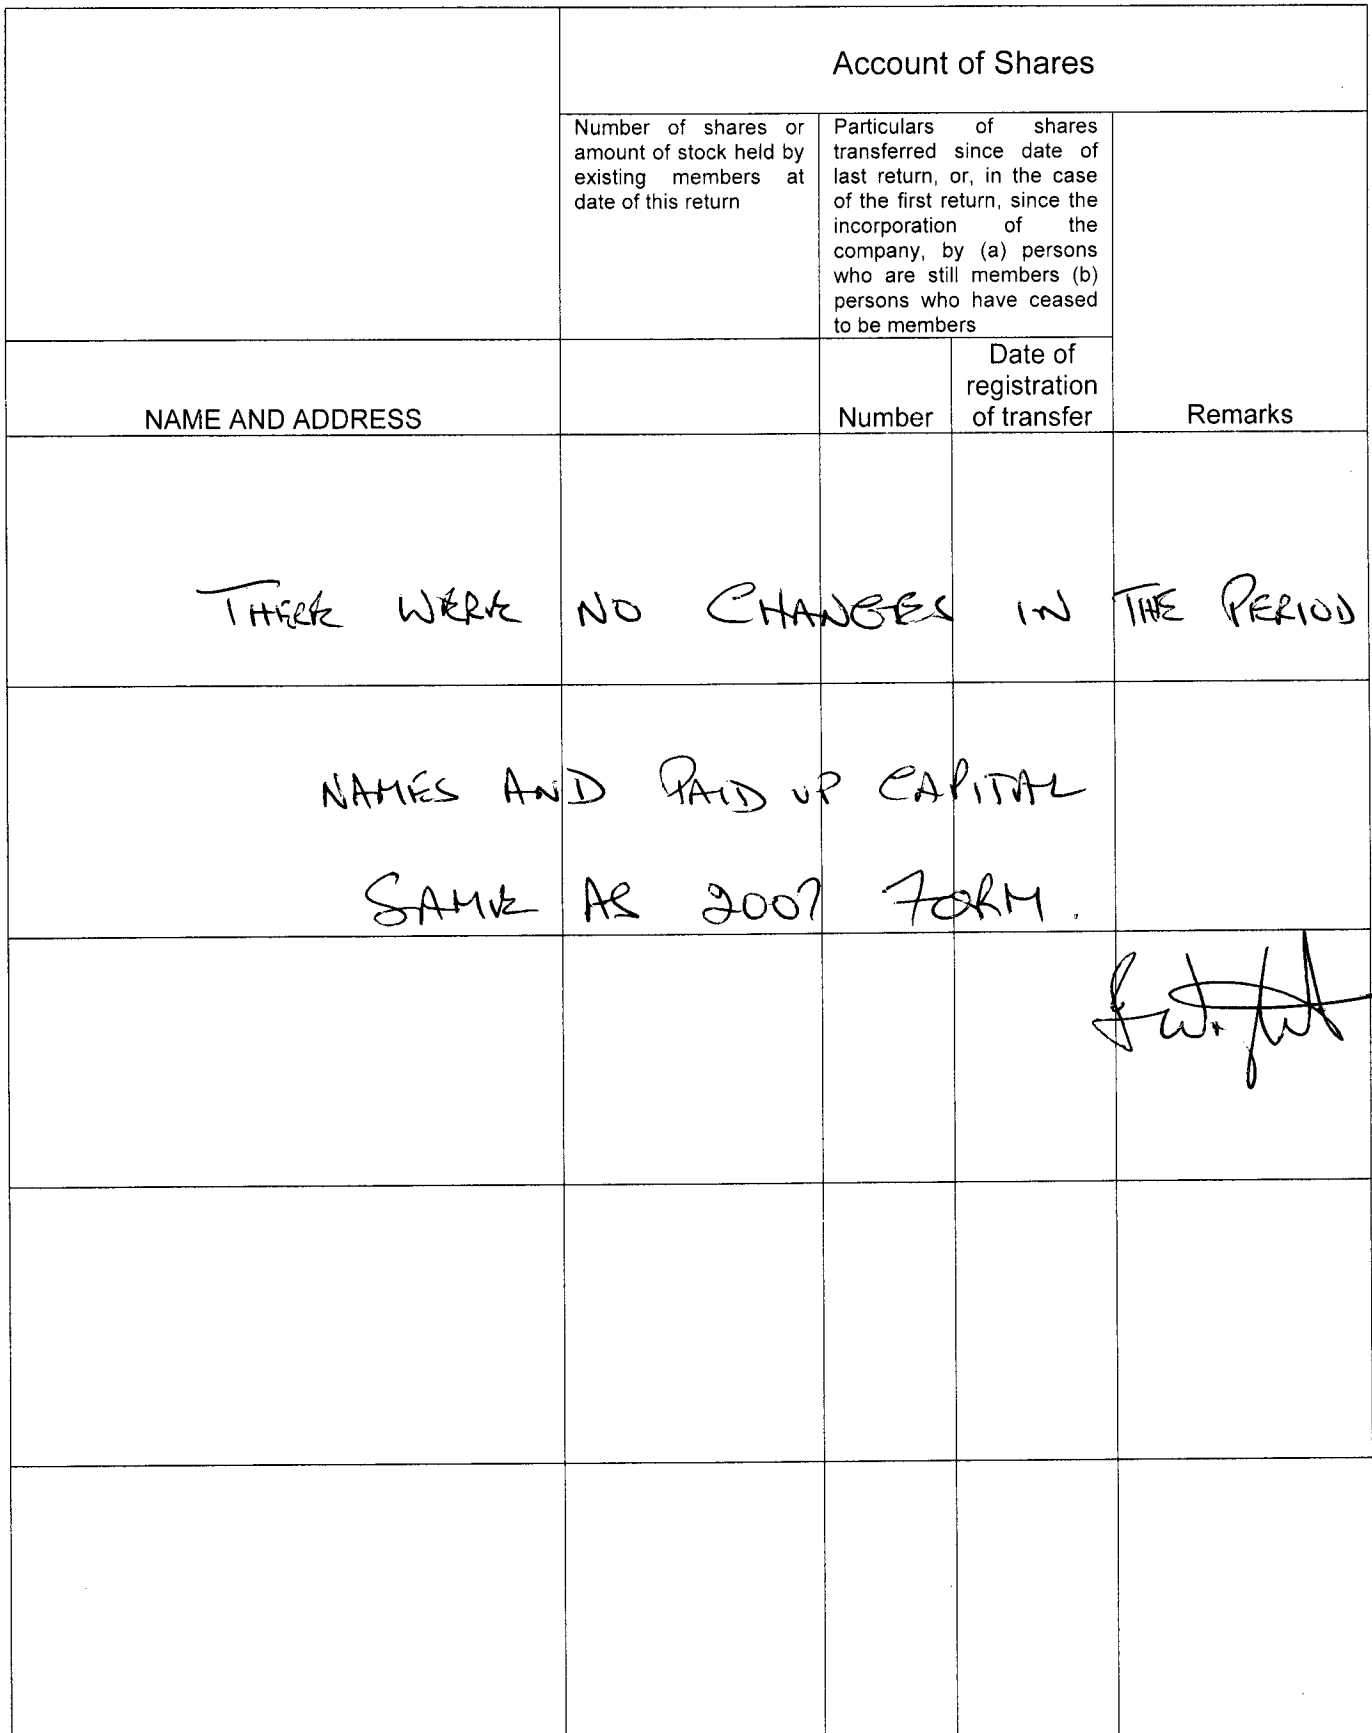 Account of Shares
Number of shares or
amount of stock held by
existing members at
date of this return
Particulars of shares
transferred since date of
last return, or, in the case
of the first return, since the
incorporation of the
company, by (a) persons
who are still members (b)
persons who have ceased
to be members
NAME AND ADDRESS
Number
Date of
registration
of transfer
Remarks
THERE WERE NO CHANGES IN THE PERIOD
NAMES AND PAID UP CAPITAL
SAME AS 2007 FORM.